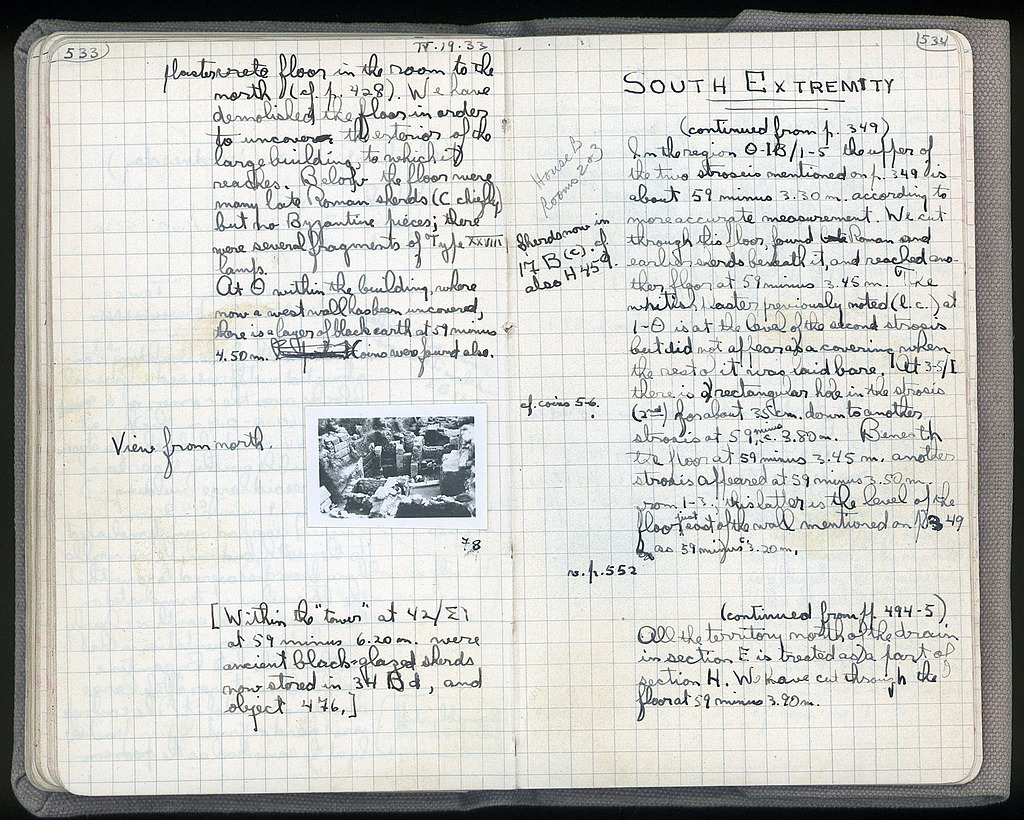 533
IV.19.33
floor in the room to the
north (cf. p. 428). We have
demolished the floor in order
to uncover the exterior of the
large building, to which it
reaches. Below the floor were
many late Roman sherds (C chiefly)
but no Byzantine pieces; there
were several fragments of Type XXVIII
lamps.
At Θ within the building, where
now a west wall has been uncovered,
there is a layer of black earth at 59 minus
4.50 m. Coins were found also.
View from north.
78
[Within the "tower" at 42/ΣΙ
at 59 minus 6.20 m. were
ancient black-glazed sherds
now stored in 34 B d, and
object 476.]
534
SOUTH EXTREMITY
(continued from p. 349)
House B
Rooms 2+3
In the region Θ-IB/1-5 the upper of
the two stroseis mentioned on p. 349 is
about 59 minus 3.30 m. according to
more accurate measurement. We cut
through this floor, found Roman and
earlier sherds beneath it, and reached ano-
ther floor at 59 minus 3.45 m. The
whitish plaster previously noted (l.c.) at
1-Θ is at the level of the second strosis
but did not appear as a covering when
the rest of it was laid bare. At 3-5/I
there is a rectangular hole in the strosis
(2nd) for about 35 cm. down to another
strosis at 59 minus c. 3.80 m. Beneath
the floor at 59 minus 3.45 m. another
strosis appeared at 59 minus 3.50 m.
from 1-3; this latter is the level of the
floor just east of the wall mentioned on p. 349
as 59 minus c. 3.20 m.
Sherds now in
17 B (c). cf.
also H 459.
cf. coins 5-6.
v. p. 552
(continued from pp. 494-5)
All the territory north of the drain
in section E is treated as a part of
section H. We have cut through the
floor at 59 minus 3.90 m.